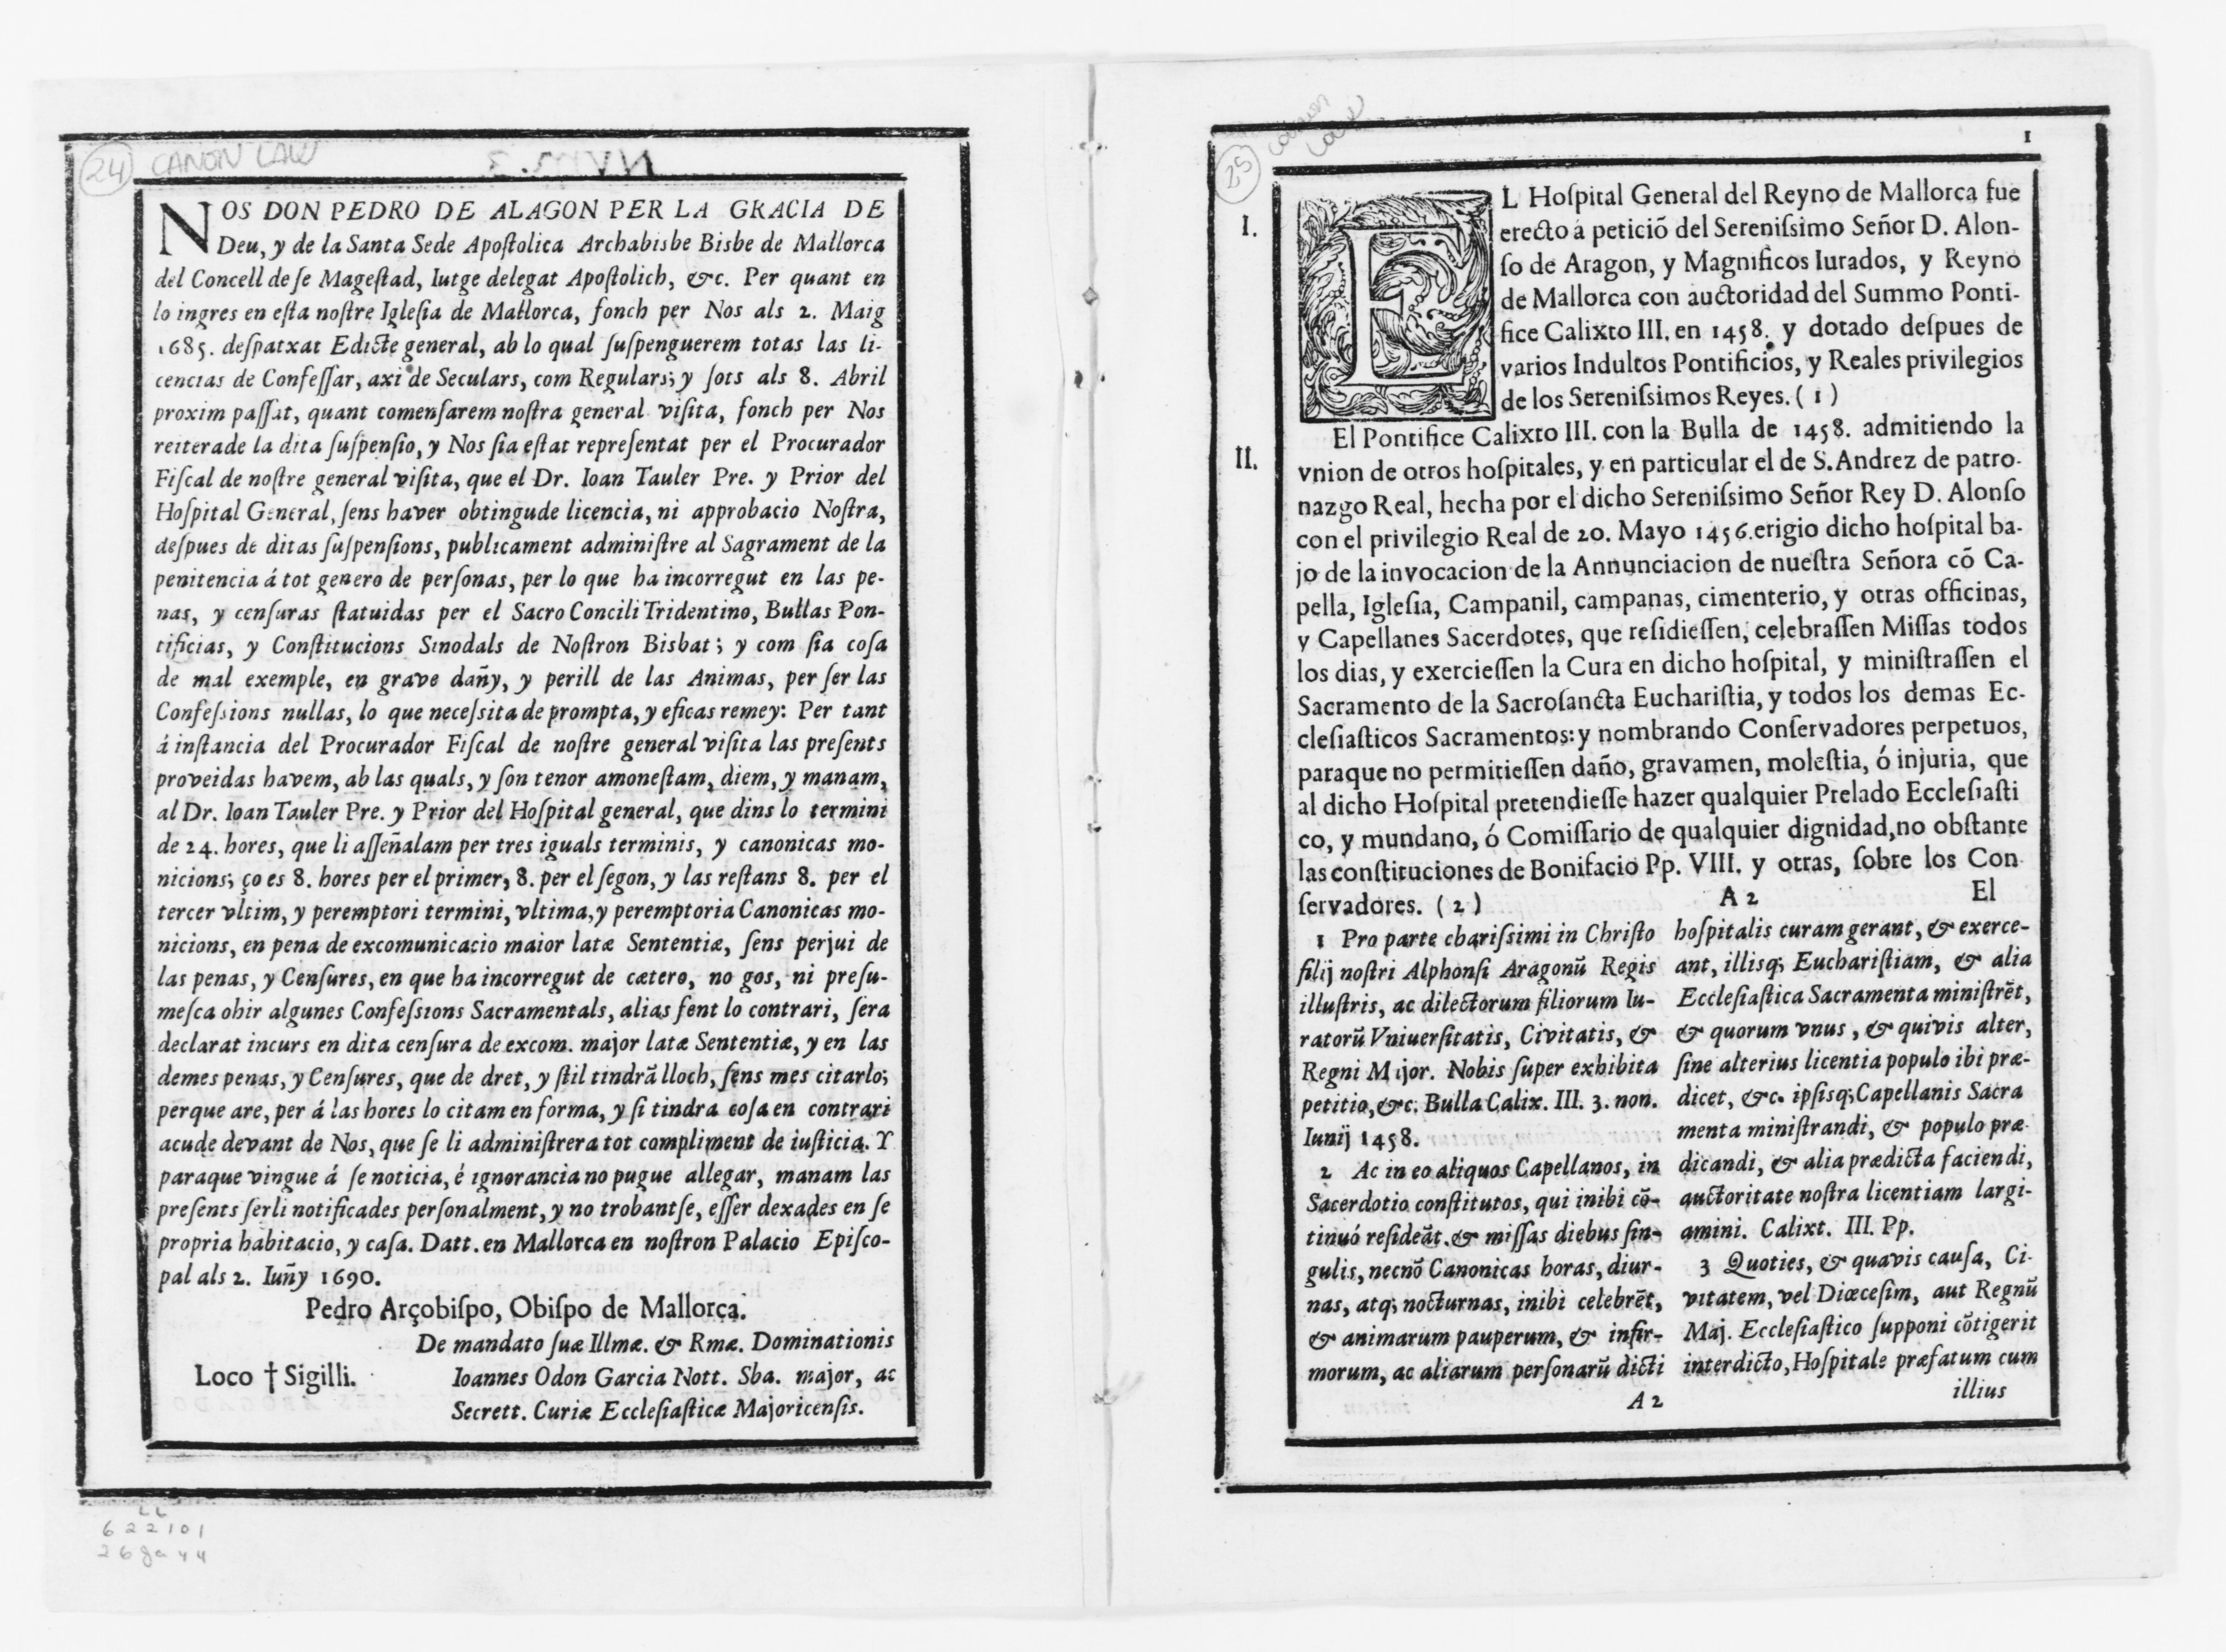 24 CANON LAW
NOS DON PEDRO DE ALAGON PER LA GRACIA DE
Deu, y de la Santa Sede Apoſtolica Archabisbe Bisbe de Mallorca
del Concell de ſe Mageſtad, Iutge delegat Apoſtolich, &c. Per quant en
lo ingres en eſta noſtre Igleſia de Mallorca, fonch per Nos als 2. Maig
1685. deſpatxat Edicte general, ab lo qual ſuſpenguerem totas las li-
cencias de Confeſſar, axi de Seculars, com Regulars; y ſots als 8. Abril
proxim paſſat, quant comenſarem noſtra general viſita, fonch per Nos
reiterade la dita ſuſpenſio, y Nos ſia eſtat repreſentat per el Procurador
Fiſcal de noſtre general viſita, que el Dr. Ioan Tauler Pre. y Prior del
Hoſpital General, ſens haver obtingude licencia, ni approbacio Noſtra,
deſpues de ditas ſuſpenſions, publicament adminiſtre al Sagrament de la
penitencia á tot genero de perſonas, per lo que ha incorregut en las pe-
nas, y cenſuras ſtatuidas per el Sacro Concili Tridentino, Bullas Pon-
tificias, y Conſtitucions Sinodals de Noſtron Bisbat; y com ſia coſa
de mal exemple, en grave dañy, y perill de las Animas, per ſer las
Confeſsions nullas, lo que neceſsita de prompta, y eficas remey: Per tant
á inſtancia del Procurador Fiſcal de noſtre general viſita las preſents
proveidas havem, ab las quals, y ſon tenor amoneſtam, diem, y manam,
al Dr. Ioan Tauler Pre. y Prior del Hoſpital general, que dins lo termini
de 24. hores, que li aſſeñalam per tres iguals terminis, y canonicas mo-
nicions; ço es 8. hores per el primer, 8. per el ſegon, y las reſtans 8. per el
tercer vltim, y peremptori termini, vltima, y peremptoria Canonicas mo-
nicions, en pena de excomunicacio maior latæ Sententiæ, ſens perjui de
las penas, y Cenſures, en que ha incorregut de cætero, no gos, ni preſu-
meſca ohir algunes Confeſsions Sacramentals, alias fent lo contrari, ſera
declarat incurs en dita cenſura de excom. major latæ Sententiæ, y en las
demes penas, y Cenſures, que de dret, y ſtil tindrā lloch, ſens mes citarlo;
perque are, per á las hores lo citam en forma, y ſi tindra coſa en contrari
acude devant de Nos, que ſe li adminiſtrera tot compliment de iuſticia. Y
paraque vingue á ſe noticia, é ignorancia no pugue allegar, manam las
preſents ſerli notificades perſonalment, y no trobantſe, eſſer dexades en ſe
propria habitacio, y caſa. Datt. en Mallorca en noſtron Palacio Epiſco-
pal als 2. Iuñy 1690.
Pedro Arçobiſpo, Obiſpo de Mallorca.
De mandato ſuæ Illmæ. & Rmæ. Dominationis
Loco † Sigilli. Ioannes Odon Garcia Nott. Sba. major, ac
Secrett. Curiæ Eccleſiaſticæ Majoricenſis.
LL
622101
26 ga 44
25 canon
law
1
I.
EL Hoſpital General del Reyno de Mallorca fue
erecto á peticiõ del Sereniſsimo Señor D. Alon-
ſo de Aragon, y Magnificos Iurados, y Reyno
de Mallorca con auctoridad del Summo Ponti-
fice Calixto III. en 1458. y dotado deſpues de
varios Indultos Pontificios, y Reales privilegios
de los Sereniſsimos Reyes. (1)
II.
El Pontifice Calixto III. con la Bulla de 1458. admitiendo la
vnion de otros hoſpitales, y en particular el de S. Andrez de patro-
nazgo Real, hecha por el dicho Sereniſsimo Señor Rey D. Alonſo
con el privilegio Real de 20. Mayo 1456. erigio dicho hoſpital ba-
jo de la invocacion de la Annunciacion de nueſtra Señora cõ Ca-
pella, Igleſia, Campanil, campanas, cimenterio, y otras officinas,
y Capellanes Sacerdotes, que reſidieſſen, celebraſſen Miſſas todos
los dias, y exercieſſen la Cura en dicho hoſpital, y miniſtraſſen el
Sacramento de la Sacroſancta Euchariſtia, y todos los demas Ec-
cleſiaſticos Sacramentos: y nombrando Conſervadores perpetuos,
paraque no permitieſſen daño, gravamen, moleſtia, ó injuria, que
al dicho Hoſpital pretendieſſe hazer qualquier Prelado Eccleſiaſti
co, y mundano, ó Comiſſario de qualquier dignidad, no obſtante
las conſtituciones de Bonifacio Pp. VIII. y otras, ſobre los Con
ſervadores. (2) A 2 El
1 Pro parte chariſsimi in Chriſto
filij noſtri Alphonſi Aragonū Regis
illuſtris, ac dilectorum filiorum Iu-
ratorū Vniuerſitatis, Civitatis, &
Regni Major. Nobis ſuper exhibita
petitio, &c. Bulla Calix. III. 3. non.
Iunij 1458.
2 Ac in eo aliquos Capellanos, in
Sacerdotio conſtitutos, qui inibi cõ-
tinuó reſideāt. & miſſas diebus ſin-
gulis, necnõ Canonicas horas, diur-
nas, atq; nocturnas, inibi celebrēt,
& animarum pauperum, & infir-
morum, ac aliarum perſonarū dicti
A 2
hoſpitalis curam gerant, & exerce-
ant, illisq; Euchariſtiam, & alia
Eccleſiaſtica Sacramenta miniſtrēt,
& quorum vnus, & quivis alter,
ſine alterius licentia populo ibi præ-
dicet, &c. ipſisq; Capellanis Sacra
menta miniſtrandi, & populo præ-
dicandi, & alia prædicta faciendi,
auctoritate noſtra licentiam largi-
amini. Calixt. III. Pp.
3 Quoties, & quavis cauſa, Ci-
vitatem, vel Diœceſim, aut Regnū
Maj. Eccleſiaſtico ſupponi cõtigerit
interdicto, Hoſpitale præfatum cum
illius